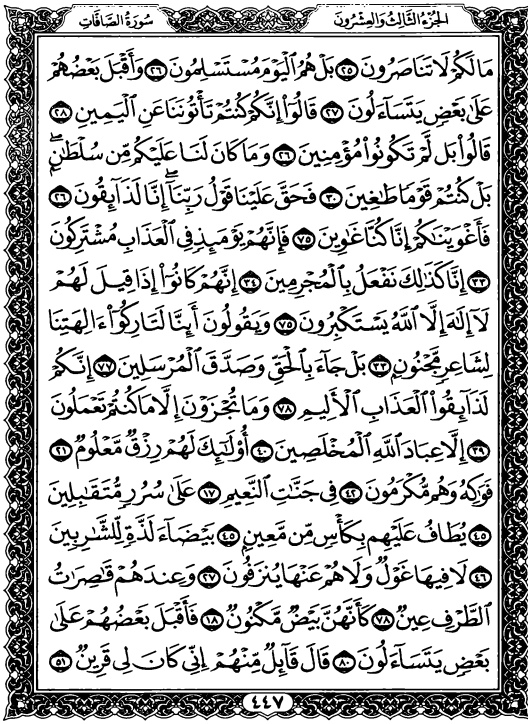 الجزء الثالث والعشرون سورة الصافات
مَا لَكُمْ لَا تَنَاصَرُونَ ٢٥ بَلْ هُمُ ٱلْيَوْمَ مُسْتَسْلِمُونَ ٢٦ وَأَقْبَلَ بَعْضُهُمْ
عَلَىٰ بَعْضٍ يَتَسَآءَلُونَ ٢٧ قَالُوٓا۟ إِنَّكُمْ كُنتُمْ تَأْتُونَنَا عَنِ ٱلْيَمِينِ ٢٨
قَالُوا۟ بَل لَّمْ تَكُونُوا۟ مُؤْمِنِينَ ٢٦ وَمَا كَانَ لَنَا عَلَيْكُم مِّن سُلْطَٰنٍۭ ۖ
بَلْ كُنتُمْ قَوْمًا طَٰغِينَ ٣٠ فَحَقَّ عَلَيْنَا قَوْلُ رَبِّنَآ ۖ إِنَّا لَذَآئِقُونَ ٢٦
فَأَغْوَيْنَٰكُمْ إِنَّا كُنَّا غَٰوِينَ ٧٥ فَإِنَّهُمْ يَوْمَئِذٍ فِى ٱلْعَذَابِ مُشْتَرِكُونَ
٣٣ إِنَّا كَذَٰلِكَ نَفْعَلُ بِٱلْمُجْرِمِينَ ٣٤ إِنَّهُمْ كَانُوٓا۟ إِذَا قِيلَ لَهُمْ
لَآ إِلَٰهَ إِلَّا ٱللَّهُ يَسْتَكْبِرُونَ ٧٥ وَيَقُولُونَ أَئِنَّا لَتَارِكُوٓا۟ ءَالِهَتِنَا
لِشَاعِرٍ مَّجْنُونٍۭ ٣٣ بَلْ جَآءَ بِٱلْحَقِّ وَصَدَّقَ ٱلْمُرْسَلِينَ ٧٧ إِنَّكُمْ
لَذَآئِقُوا۟ ٱلْعَذَابِ ٱلْأَلِيمِ ٧٨ وَمَا تُجْزَوْنَ إِلَّا مَا كُنتُمْ تَعْمَلُونَ
٣٩ إِلَّا عِبَادَ ٱللَّهِ ٱلْمُخْلَصِينَ ٤٠ أُو۟لَٰٓئِكَ لَهُمْ رِزْقٌ مَّعْلُومٌ ٢١
فَوَٰكِهُ وَهُم مُّكْرَمُونَ ٤٢ فِى جَنَّٰتِ ٱلنَّعِيمِ ١٧ عَلَىٰ سُرُرٍ مُّتَقَٰبِلِينَ
٤٥ يُطَافُ عَلَيْهِم بِكَأْسٍ مِّن مَّعِينٍۭ ٤٥ بَيْضَآءَ لَذَّةٍ لِّلشَّٰرِبِينَ
٤٦ لَا فِيهَا غَوْلٌ وَلَا هُمْ عَنْهَا يُنزَفُونَ ٢٧ وَعِندَهُمْ قَٰصِرَٰتُ
ٱلطَّرْفِ عِينٌ ٧٨ كَأَنَّهُنَّ بَيْضٌ مَّكْنُونٌ ١٨ فَأَقْبَلَ بَعْضُهُمْ عَلَىٰ
بَعْضٍ يَتَسَآءَلُونَ ٨٠ قَالَ قَآئِلٌ مِّنْهُمْ إِنِّى كَانَ لِى قَرِينٌ ٥١
٤٤٧